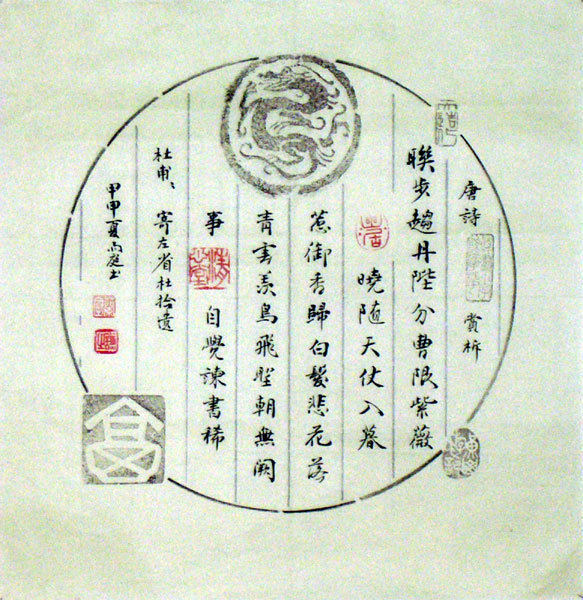 唐詩 賞析
聯步趨丹陛分曹限紫薇
曉随天仗入暮
惹御香歸白髮悲花落
青雲羨鳥飛聖朝無闕
事 自覺諫書稀
杜甫、寄左省杜拾遺
甲申夏尚庭书